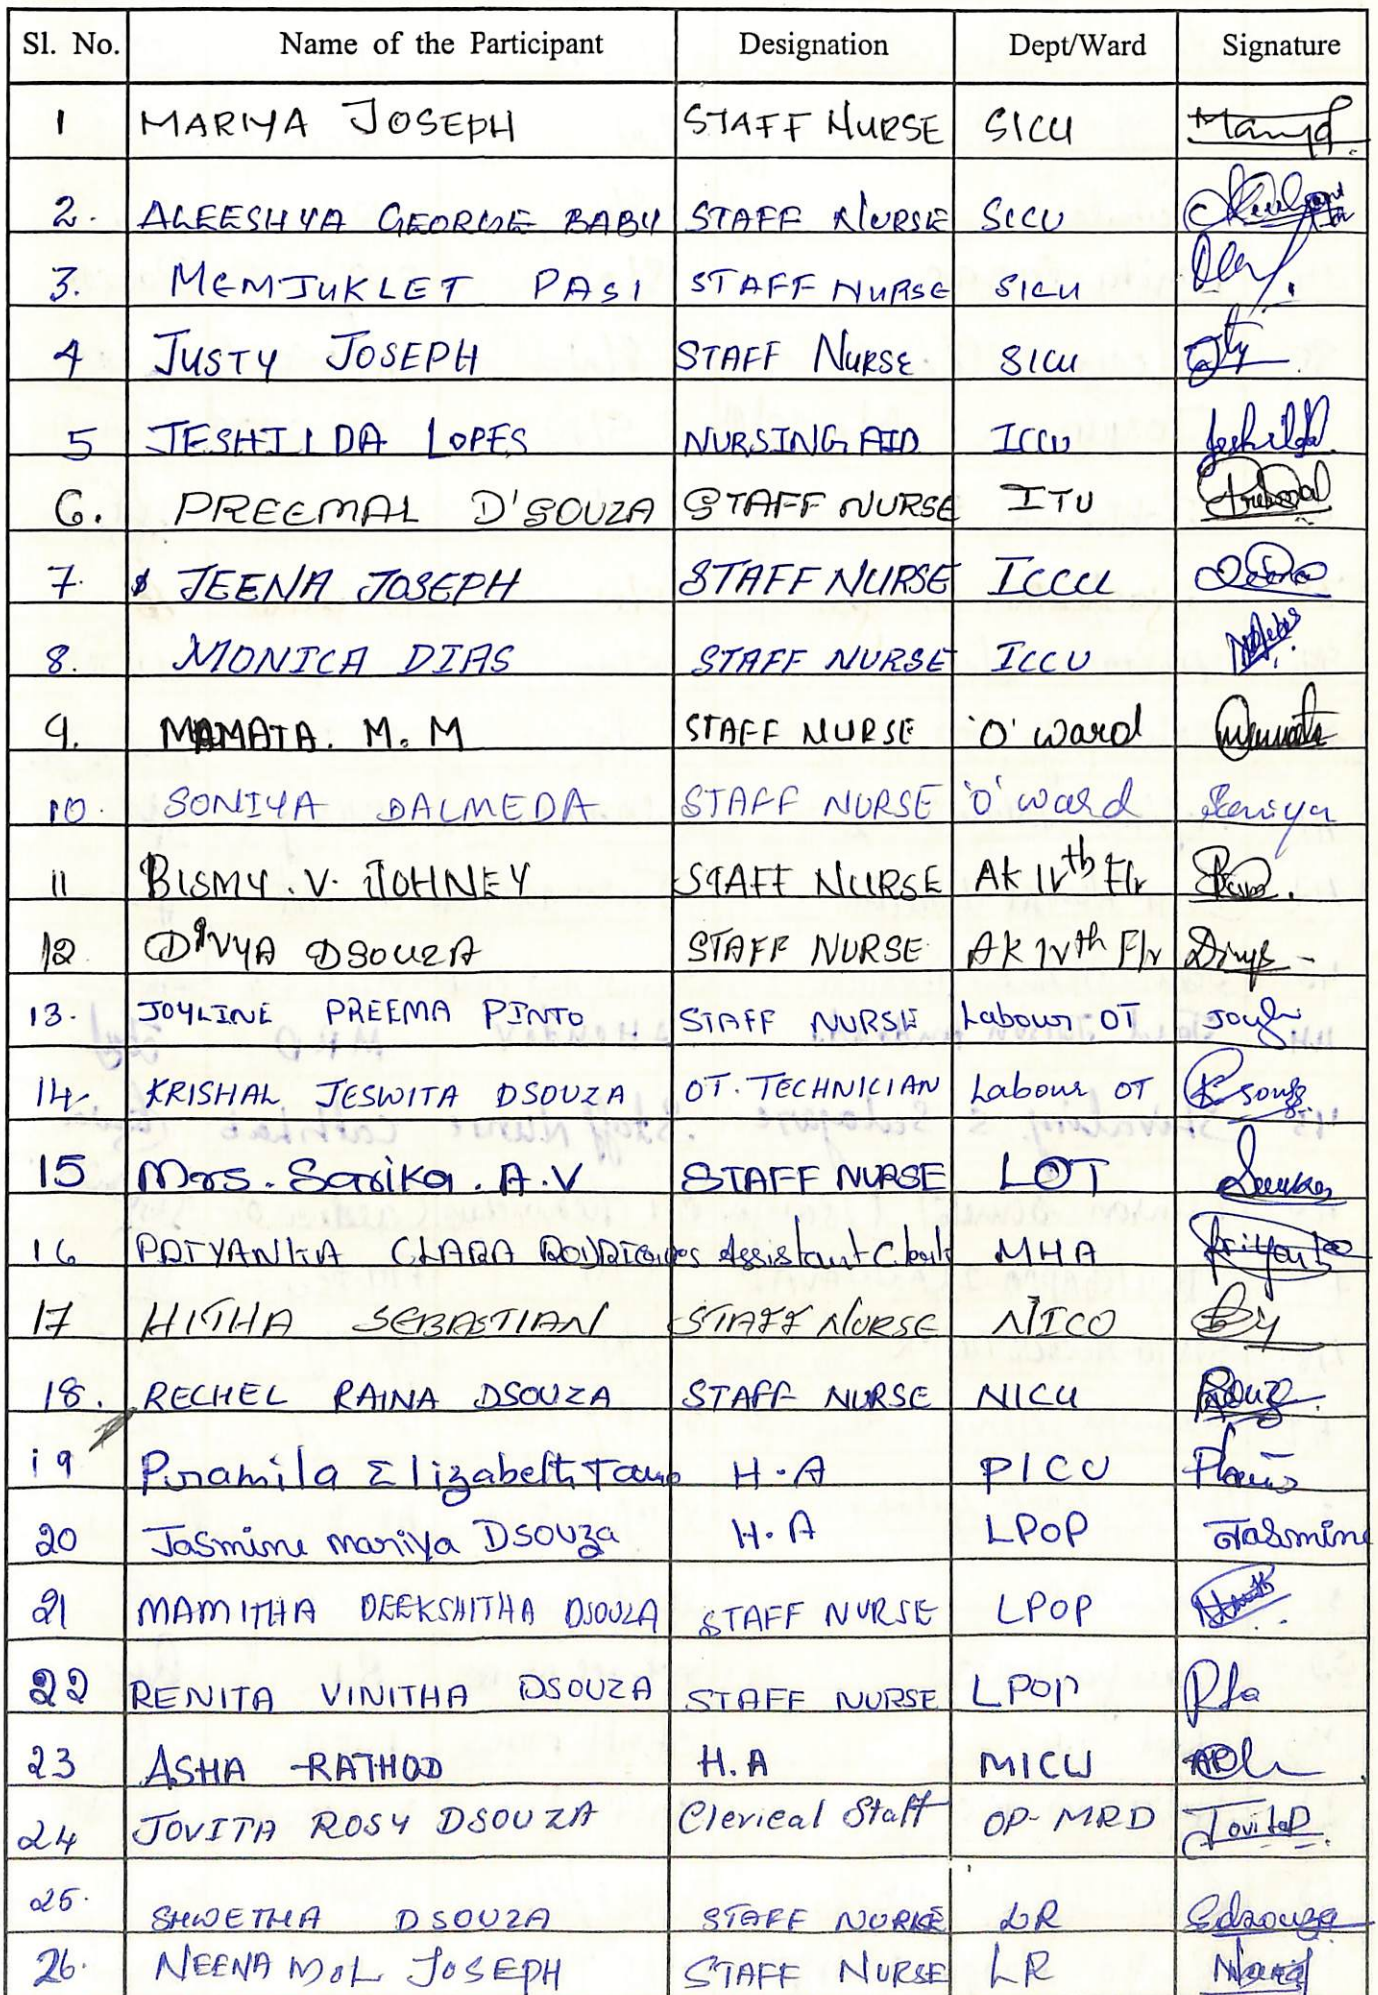 Sl. No. Name of the Participant Designation Dept/Ward Signature
1 MARIYA JOSEPH STAFF NURSE SICU
2. ALEESHYA GEORGE BABY STAFF NURSE SICU
3. MEMJUKLET PASI STAFF NURSE SICU
4 JUSTY JOSEPH STAFF NURSE SICU
5 JESHILDA LOPES NURSING AID ICCU Jeshilda
6. PREEMAL D'SOUZA STAFF NURSE ITU Preemal
7. JEENA JOSEPH STAFF NURSE ICCU
8. MONICA DIAS STAFF NURSE ICCU
9. MAMATA. M. M STAFF NURSE 'O' ward Mamata
10. SONIYA DALMEDA STAFF NURSE 'O' ward Soniya
11 BISMY. V. JOHNEY STAFF NURSE AK IVth Flr
12 DIVYA DSOUZA STAFF NURSE AK IVth Flr Divya
13. JOYLINE PREEMA PINTO STAFF NURSE Labour OT
14. KRISHAL JESWITA DSOUZA OT. TECHNICIAN Labour OT
15 Mrs. Sarika. A.V STAFF NURSE LOT
16 PRIYANKA CLARA RODRIGUES Assistant Clerk MHA Priyanka
17 HITHA SEBASTIAN STAFF NURSE NICU
18. RECHEL RAINA DSOUZA STAFF NURSE NICU
19 Pramila Elizabeth Tauro H.A PICU
20 Jasmine mariya Dsouza H.A LPOP Jasmine
21 MAMITHA DEEKSHITHA DSOUZA STAFF NURSE LPOP
22 RENITA VINITHA DSOUZA STAFF NURSE LPOP
23 ASHA RATHOD H.A MICU
24 JOVITA ROSY DSOUZA Clerical Staff OP-MRD JovitaD.
25. SHWETHA DSOUZA STAFF NURSE LR Sdsouza
26. NEENA MOL JOSEPH STAFF NURSE LR